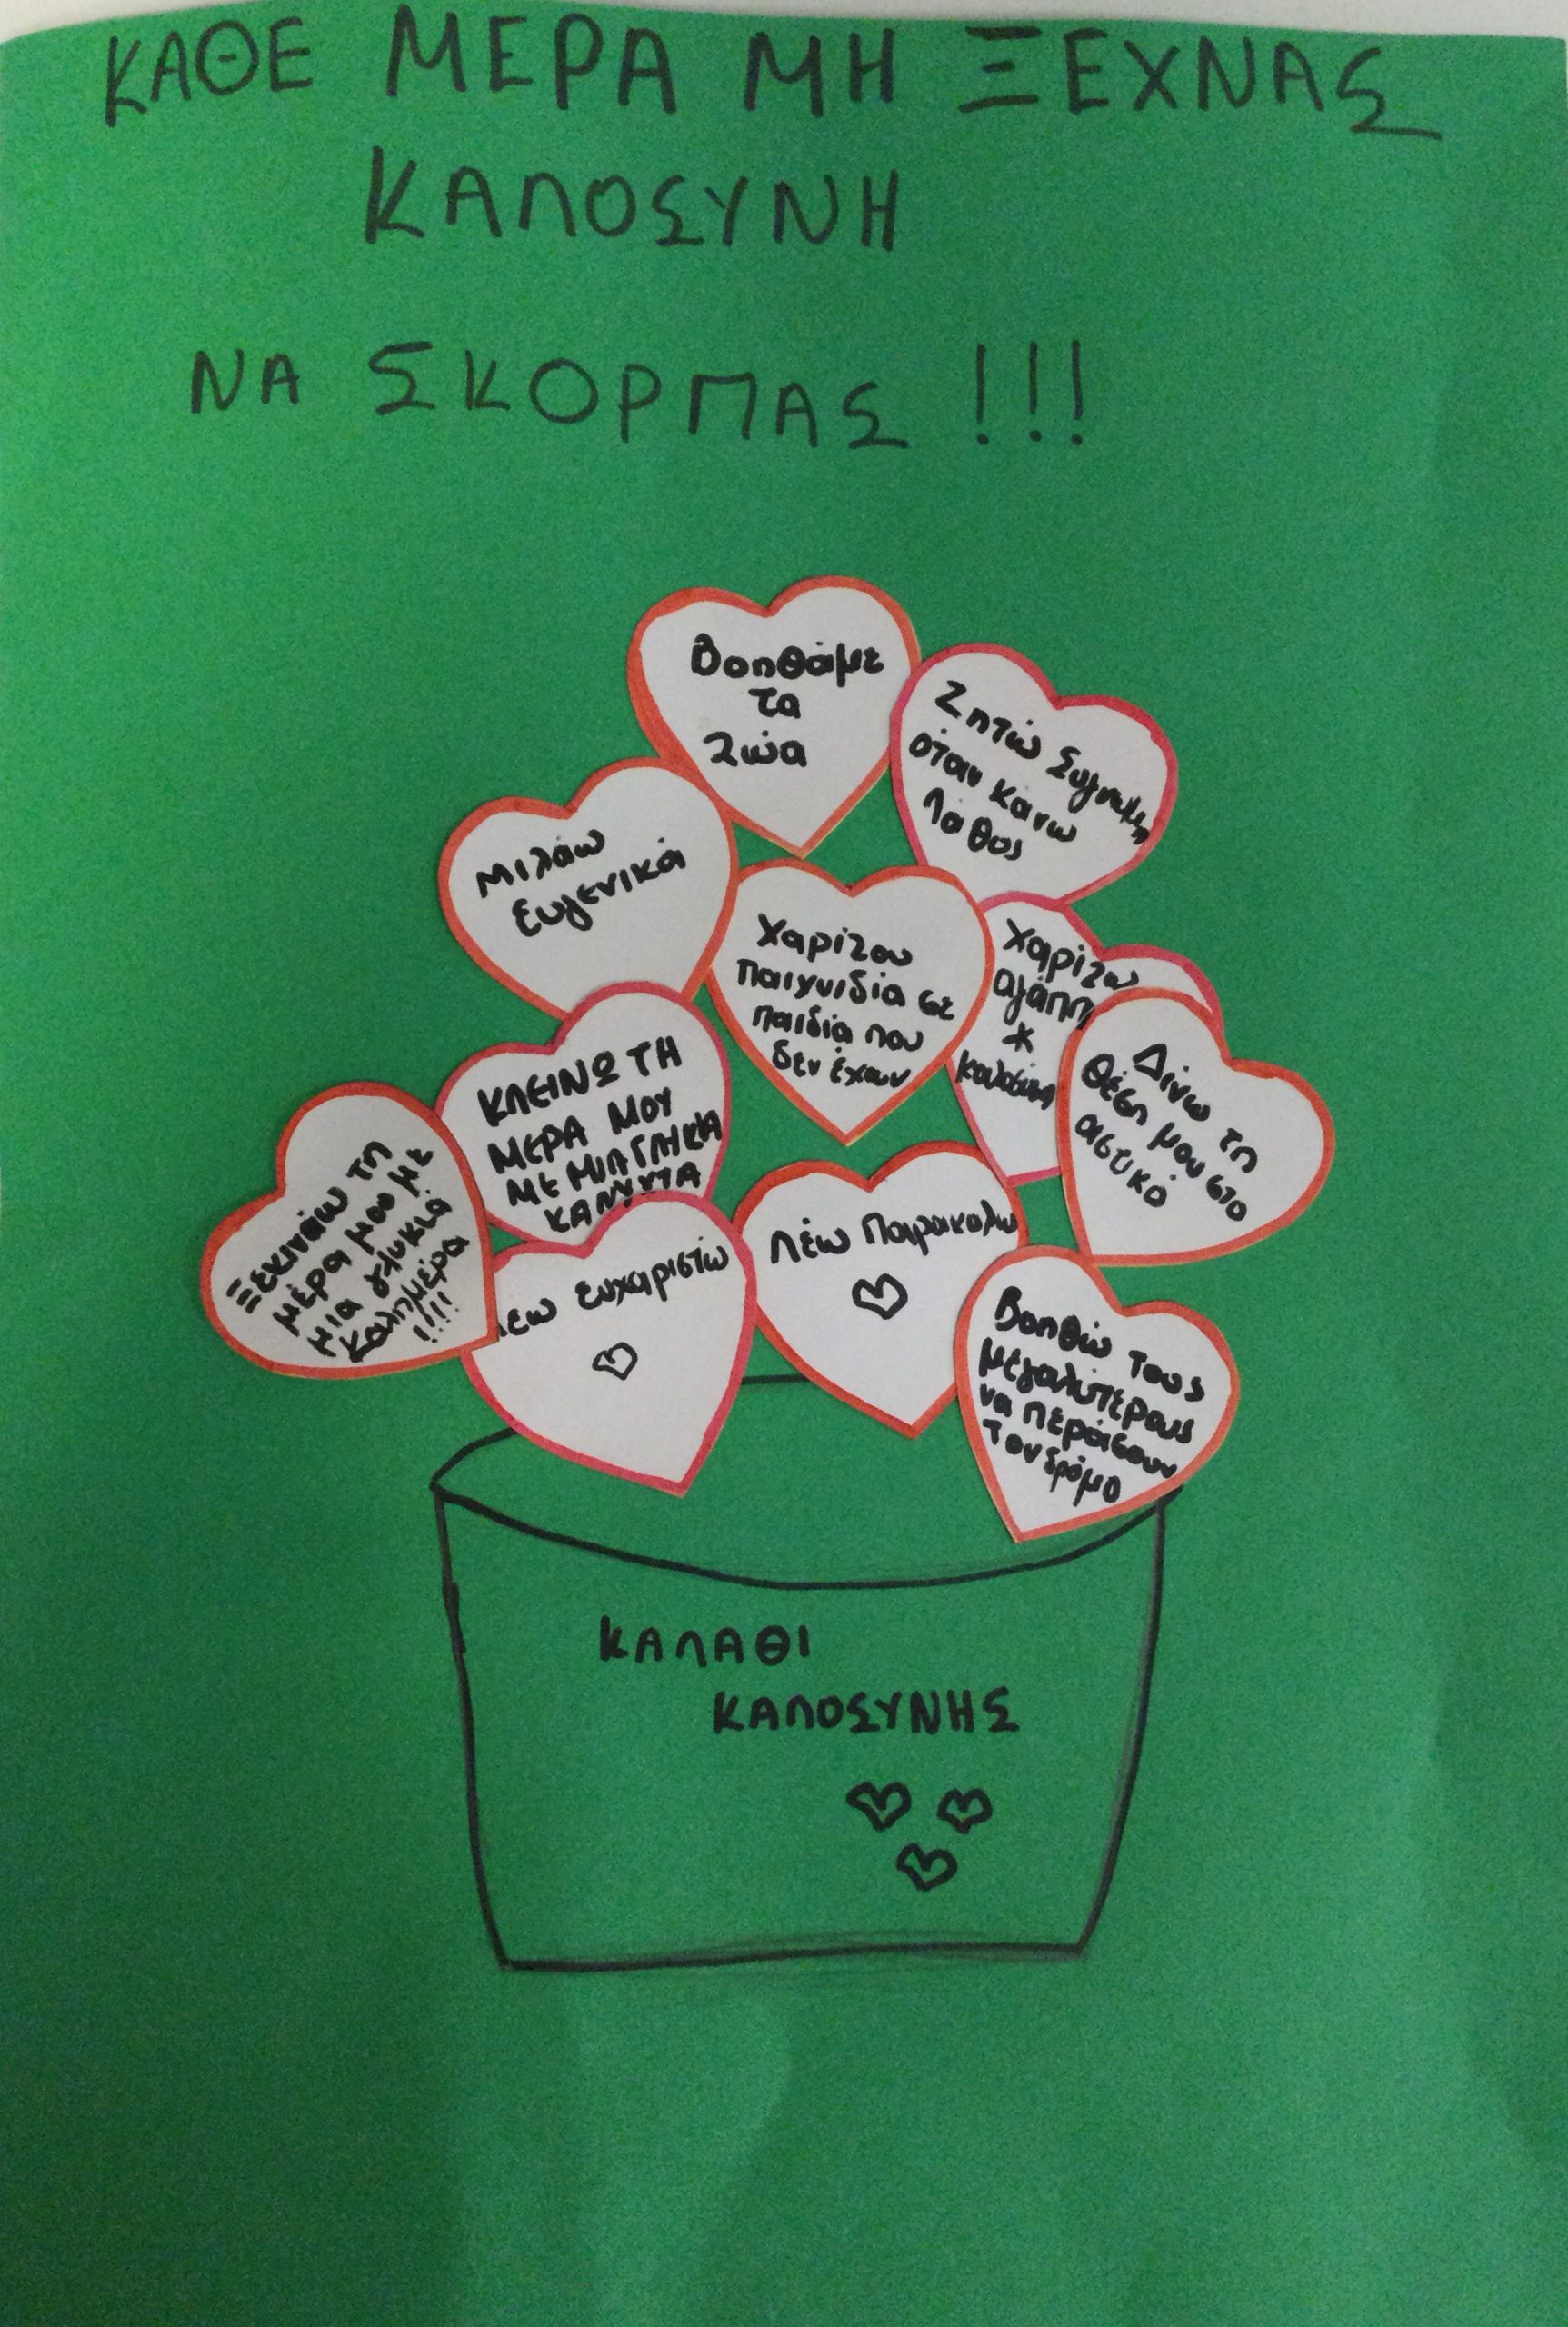 ΚΑΘΕ ΜΕΡΑ ΜΗ ΞΕΧΝΑΣ
ΚΑΛΟΣΥΝΗ
ΝΑ ΣΚΟΡΠΑΣ !!!
Βοηθάμε
τα
ζώα
Ζητώ Συγνώμη
όταν κάνω
λάθος
Μιλάω
Ευγενικά
Χαρίζου
παιχνιδία σε
παιδιά που
δεν έχουν
Χαρίζω
αγάπη
*
καλοσύνη
Δίνω τη
θέση μου στο
αστικό
ΚΛΕΙΝΩ ΤΗ
ΜΕΡΑ ΜΟΥ
ΜΕ ΜΙΑ ΓΛΗΚΙΑ
Ξεκινάω τη
μέρα μου με
μια γλυκιά
καλημέρα
!!!
λέω Ευχαριστώ
Λέω Παρακαλω
Βοηθώ τους
μεγαλύτερους
να περάσουν
τον δρόμο
ΚΑΛΑΘΙ
ΚΑΛΟΣΥΝΗΣ